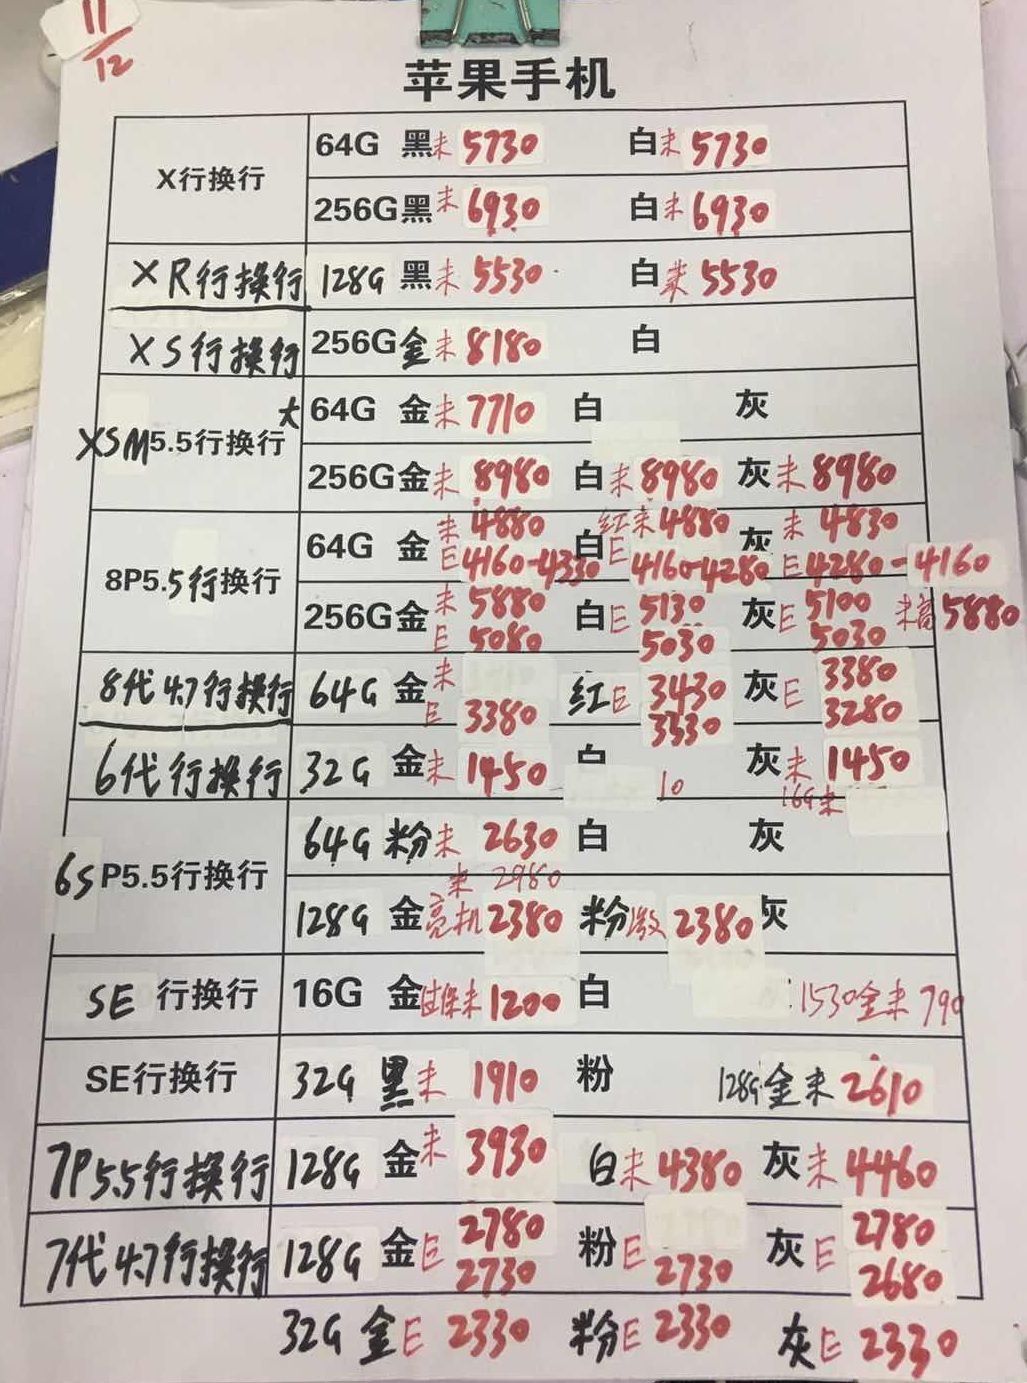 11/12
苹果手机
X行换行 64G 黑未 5730 白未 5730
256G黑未 6930 白未 6930
XR行换行 128G 黑未 5530 白未 5530
XS行换行 256G金未 8180 白
XSM5.5行换行 大 64G 金未 7710 白 灰
256G金未 8980 白未 8980 灰未 8980
8P5.5行换行 64G 金 未 4880 白 红未 4880 灰 未 4830
E 4160-4330 E 4160-4280 E 4280-4160
256G金 未 5880 白E 5130 灰E 5100 未 5880
E 5080 5030 5030
8代4.7行换行 64G 金 未 红E 3430 灰E 3380
E 3380 3330 3280
6代行换行 32G 金未 1450 白 10 灰未 1450
16G未
6SP5.5行换行 64G 粉未 2630 白 灰
未 2980
128G 金亮机 2380 粉激 2380 灰
SE 行换行 16G 金过保未 1200 白 1530金未 790
SE行换行 32G 黑未 1910 粉 128G金未 2610
7P5.5行换行 128G 金未 3930 白未 4380 灰未 4460
7代4.7行换行 128G 金E 2780 粉E 灰E 2780
2730 2730 2680
32G 金E 2330 粉E 2330 灰E 2330